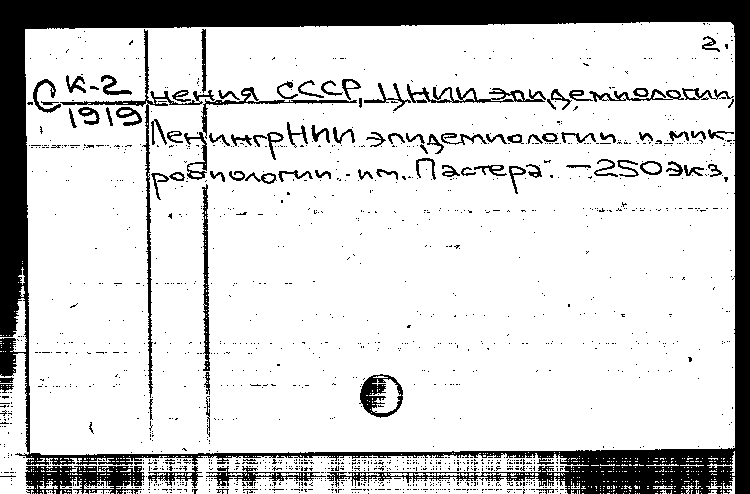 2.
С К-2
1919
нения СССР, ЦНИИ эпидемиологии,
ЛенингрНИИ эпидемиологии и мик-
робиологии им. Пастера. — 250 экз.